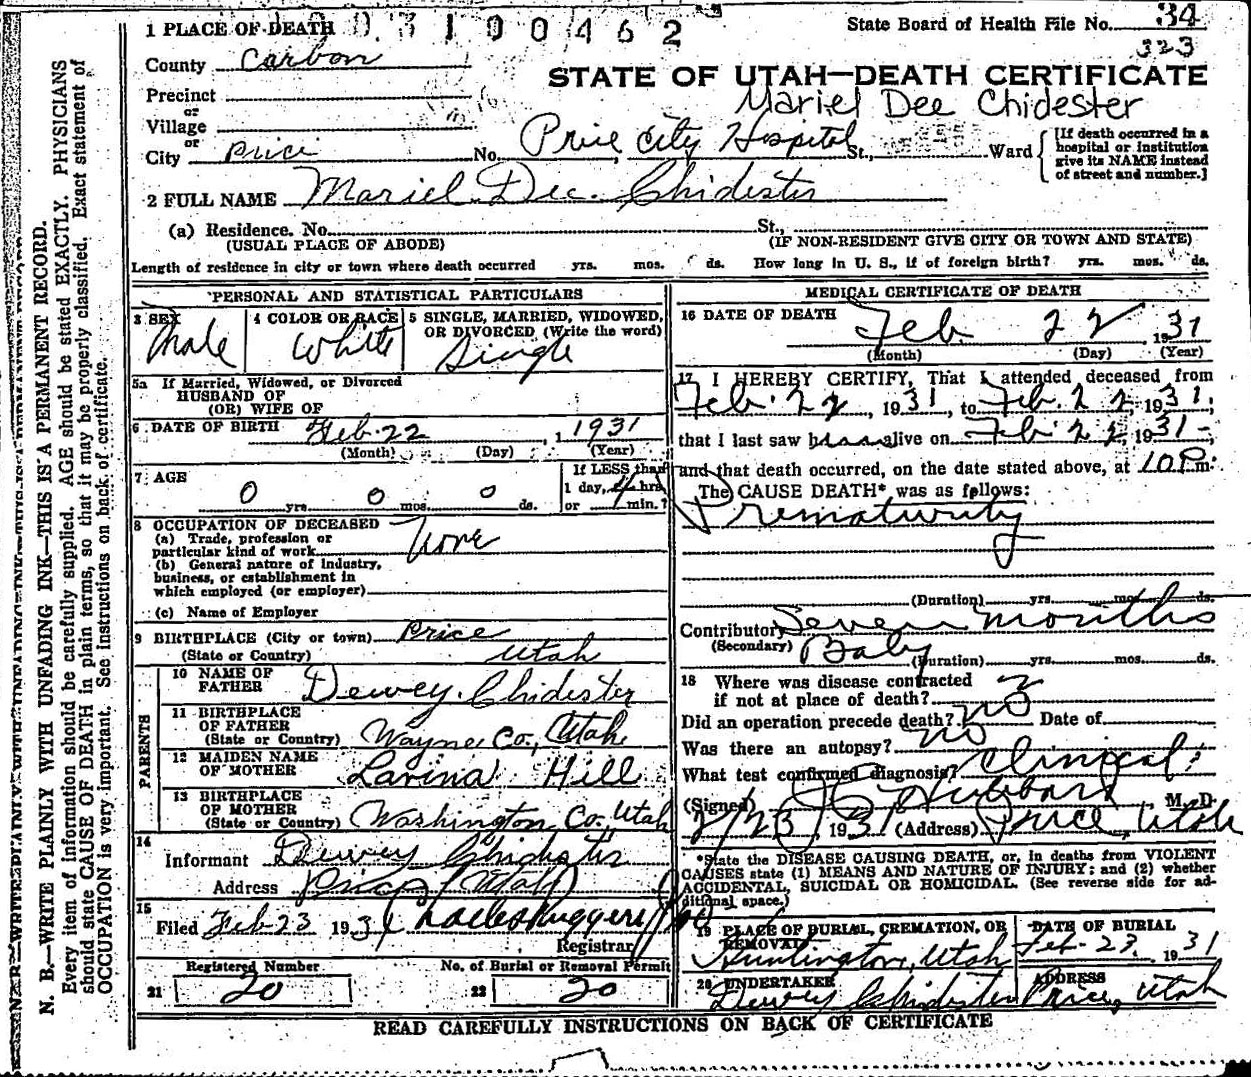 N. B.—WRITE PLAINLY WITH UNFADING INK—THIS IS A PERMANENT RECORD.
Every item of information should be carefully supplied. AGE should be stated EXACTLY. PHYSICIANS
should state CAUSE OF DEATH in plain terms, so that it may be properly classified. Exact statement of
OCCUPATION is very important. See instructions on back of certificate.
1 PLACE OF DEATH
3100462
State Board of Health File No. 34
323
County Carbon
STATE OF UTAH—DEATH CERTIFICATE
Precinct
Mariel Dee Chidester
or
Village
or
City Price No. Price City Hospital St., Ward
[If death occurred in a
hospital or institution
give its NAME instead
of street and number.]
2 FULL NAME Mariel Dee. Chidester
(a) Residence. No. St.,
(USUAL PLACE OF ABODE) (IF NON-RESIDENT GIVE CITY OR TOWN AND STATE)
Length of residence in city or town where death occurred yrs. mos. ds. How long in U. S., if of foreign birth? yrs. mos. ds.
PERSONAL AND STATISTICAL PARTICULARS
3 SEX Male
4 COLOR OR RACE White
5 SINGLE, MARRIED, WIDOWED,
OR DIVORCED (Write the word)
Single
5a If Married, Widowed, or Divorced
HUSBAND OF
(OR) WIFE OF
6 DATE OF BIRTH Feb. 22, 1931
(Month) (Day) (Year)
7 AGE 0 yrs. 0 mos. 0 ds.
If LESS than
1 day, hrs.
or min.?
8 OCCUPATION OF DECEASED
(a) Trade, profession or
particular kind of work None
(b) General nature of industry,
business, or establishment in
which employed (or employer)
(c) Name of Employer
9 BIRTHPLACE (City or town) Price
(State or Country) Utah
PARENTS
10 NAME OF
FATHER Dewey Chidester
11 BIRTHPLACE
OF FATHER
(State or Country) Wayne Co., Utah
12 MAIDEN NAME
OF MOTHER Lavina Hill
13 BIRTHPLACE
OF MOTHER
(State or Country) Washington Co. Utah
14
Informant Dewey Chidester
Address Price, Utah
15
Filed Feb 23 1931
Registrar
Registered Number No. of Burial or Removal Permit
21 20 22 20
MEDICAL CERTIFICATE OF DEATH
16 DATE OF DEATH
Feb. 22, 1931
(Month) (Day) (Year)
17 I HEREBY CERTIFY, That I attended deceased from
Feb. 22, 1931, to Feb. 22, 1931,
that I last saw alive on Feb 22, 1931,
and that death occurred, on the date stated above, at 10 P m.
The CAUSE DEATH* was as follows:
Prematurity
(Duration) yrs. mos. ds.
Contributory Seven months
(Secondary) Baby
(Duration) yrs. mos. ds.
18 Where was disease contracted
if not at place of death?
Did an operation precede death? no Date of
Was there an autopsy? no
What test confirmed diagnosis? Clinical
(Signed) Hubbard M. D.
2/23, 193 (Address) Price, Utah
*State the DISEASE CAUSING DEATH, or, in deaths from VIOLENT
CAUSES state (1) MEANS AND NATURE OF INJURY; and (2) whether
ACCIDENTAL, SUICIDAL OR HOMICIDAL. (See reverse side for ad-
ditional space.)
19 PLACE OF BURIAL, CREMATION, OR
REMOVAL
Huntington, Utah
DATE OF BURIAL
Feb. 23, 1931
20 UNDERTAKER
Dewey Chidester
ADDRESS
Price, Utah
READ CAREFULLY INSTRUCTIONS ON BACK OF CERTIFICATE